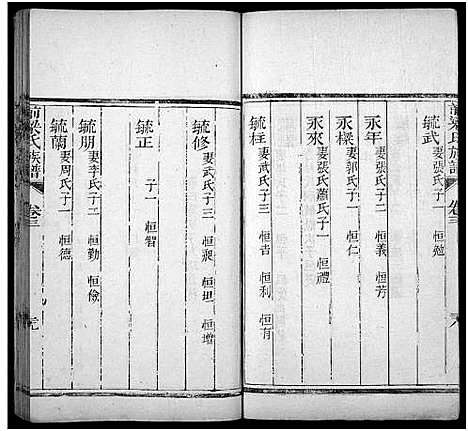 前梁氏族譜 卷三
毓武 妻張氏子一 恒勉
永年 妻張氏子二 恒義 恒芳
永樑 妻郭氏子一 恒仁
永來 妻張氏蕭氏子一 恒禮
毓柱 妻武氏子三 恒吉 恒利 恒有
毓修 妻武氏子三 恒昶 恒坦 恒增
毓正 子一 恒智
毓朋 妻李氏子二 恒勤 恒儉
毓蘭 妻周氏子一 恒德
前梁氏族譜 卷三